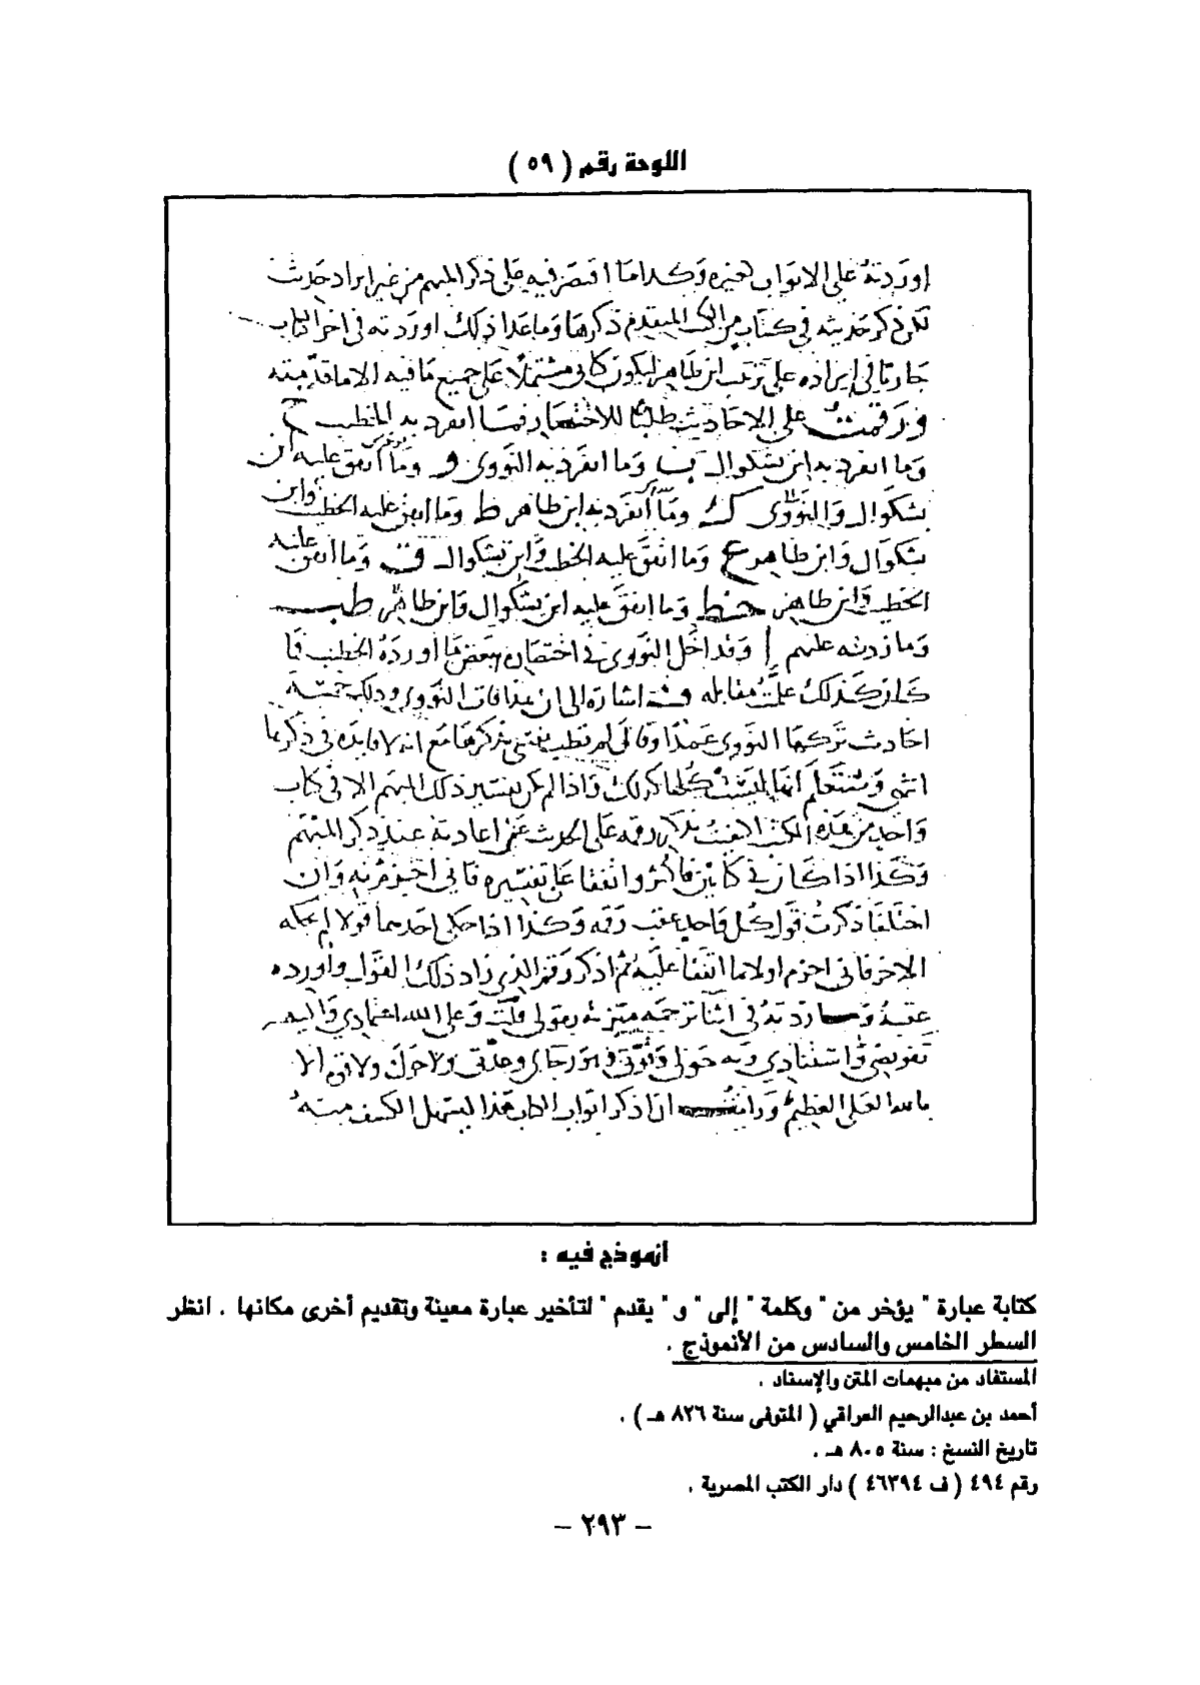 اللوحة رقم ( ٥٩ )
اوردته على الابواب لغيره وكذا ما اقتصر فيه على ذكر المبهم من غير ايراد حديث
لكن ذكر حديثه في كتاب من الكتب المتقدم ذكرها وما عدا ذلك اوردته في اخر الباب
جاريا في ايراده على ترتيب ابن طاهر ليكون كتابي مشتملا على جميع ما فيه الا ما قدمته
ورقمت على الاحاديث طلبا للاختصار فما انفرد به الخطيب خ
وما انفرد به ابن بشكوال ب وما انفرد به النووي و وما اتفق عليه ابن
بشكوال والنووي ك وما انفرد به ابن طاهر ط وما اتفق عليه الخطيب وابن
بشكوال وابن طاهر ع وما اتفق عليه الخطيب وابن بشكوال ق وما اتفق عليه
الخطيب وابن طاهر خط وما اتفق عليه ابن بشكوال وابن طاهر طب
وما زدته عليهم ا وقد اخل النووي في اختصاره ببعض ما اورده الخطيب فما
كان كذلك علمت مقابله اشارة الى ان هذا فات النووي وذلك خمسة
احاديث تركها النووي عمدا وقال لم تطب نفسي بذكرها مع انه لا فايدة في ذكرها
انتهى وستعلم انها ليست كلها كذلك واذا لم يكن تفسير ذلك المبهم الا في كتاب
واحد من هذه الكتب اكتفيت بذكر رقمه على الحديث عن اعادته عند ذكر المبهم
وكذا اذا كان في كتابين فاكثر واتفقا على تفسيره فاني اجزم به وان
اختلفا ذكرت قول كل واحد عقب رقمه وكذا اذا حكى احدهما قولا لم يحكه
الاخر فاني اجزم اولا بما اتفقا عليه ثم اذكر رقم الذي زاد ذلك القول واورده
عقبه وما زدته في اثنا ترجمه ميزته بقولي قلت وعلى الله اعتمادي واليه
تفويضي واستنادي وبه حولي وقوتي فهو رجائي وعدتي ولا حول ولا قوة الا
بالله العلي العظيم ورايت ان اذكر ابواب الكتاب هذا ليسهل الكشف منه
انموذج فيه :
كتابة عبارة " يؤخر من " وكلمة " إلى " و " يقدم " لتأخير عبارة معينة وتقديم أخرى مكانها . انظر
السطر الخامس والسادس من الأنموذج .
المستفاد من مبهمات المتن والإسناد .
أحمد بن عبدالرحيم العراقي ( المتوفى سنة ٨٢٦ هـ ) .
تاريخ النسخ : سنة ٨٠٥ هـ .
رقم ٤٩٤ ( ف ٤٦٣٩٤ ) دار الكتب المصرية .
– ٢٩٣ –